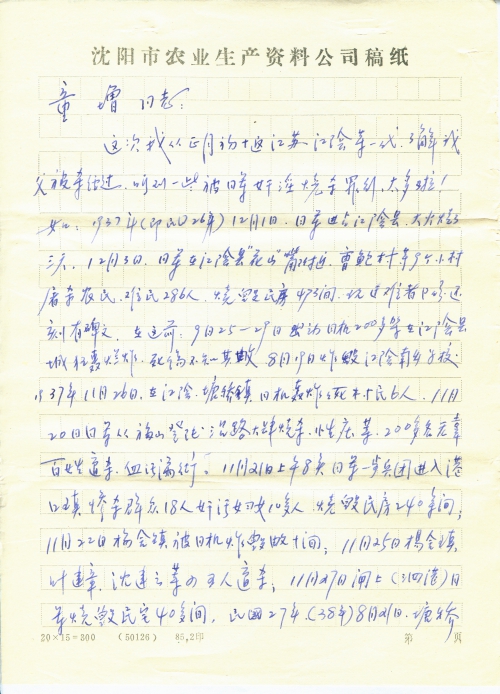 沈阳市农业生产资料公司稿纸
童增同志：
这次我从正月初十返江苏江阴等一代，了解我
父被杀经过，听到一些被日军奸淫烧杀罪行，太多啦！
如：1937年(即民国26年)12月1日，日军进占江阴县，大火烧
三天，12月3日，日军在江阴县"花山"附近，曹鲍村等9个小村
屠杀农民、难民286人，烧毁民房473间，
刻有碑文，在这前：9月25-29日出动日机200多架在江阴县
城狂轰烂炸，死伤不知其数 8月19日炸毁江阴南菁学校，
1937年11月26日，在江阴、塘桥镇日机轰炸，死村民6人，11月
20日日军从福山登陆，沿路大肆烧杀，200多名无辜
百姓遭杀，血污满街；11月21日上午8点日军一步兵团进入港
口镇，惨杀群众18人奸污妇女10多人，烧毁民房240多间；
11月22日杨舍镇被日机炸毁数十间；11月25日杨舍镇，
叶建章、沈连云等四五人遭杀；11月27日闸上(三泗港)日
军烧毁民宅40多间，民国27年(38年)8月21日，塘桥
20×15=300 (50126) 85,2印 第 页